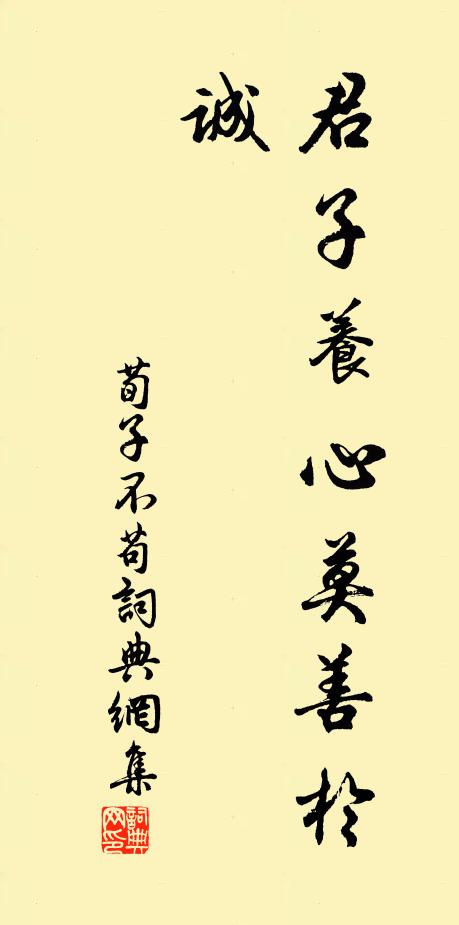 君子養心莫善於
誠
荀子不苟詞典網集
詞典網印